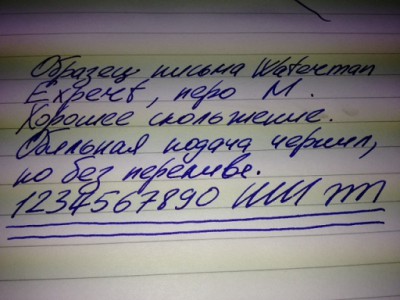 Образец письма Waterman
Expert, перо M.
Хорошее скольжение.
Обильная подача чернил,
но без перелива.
1234567890 шш тт